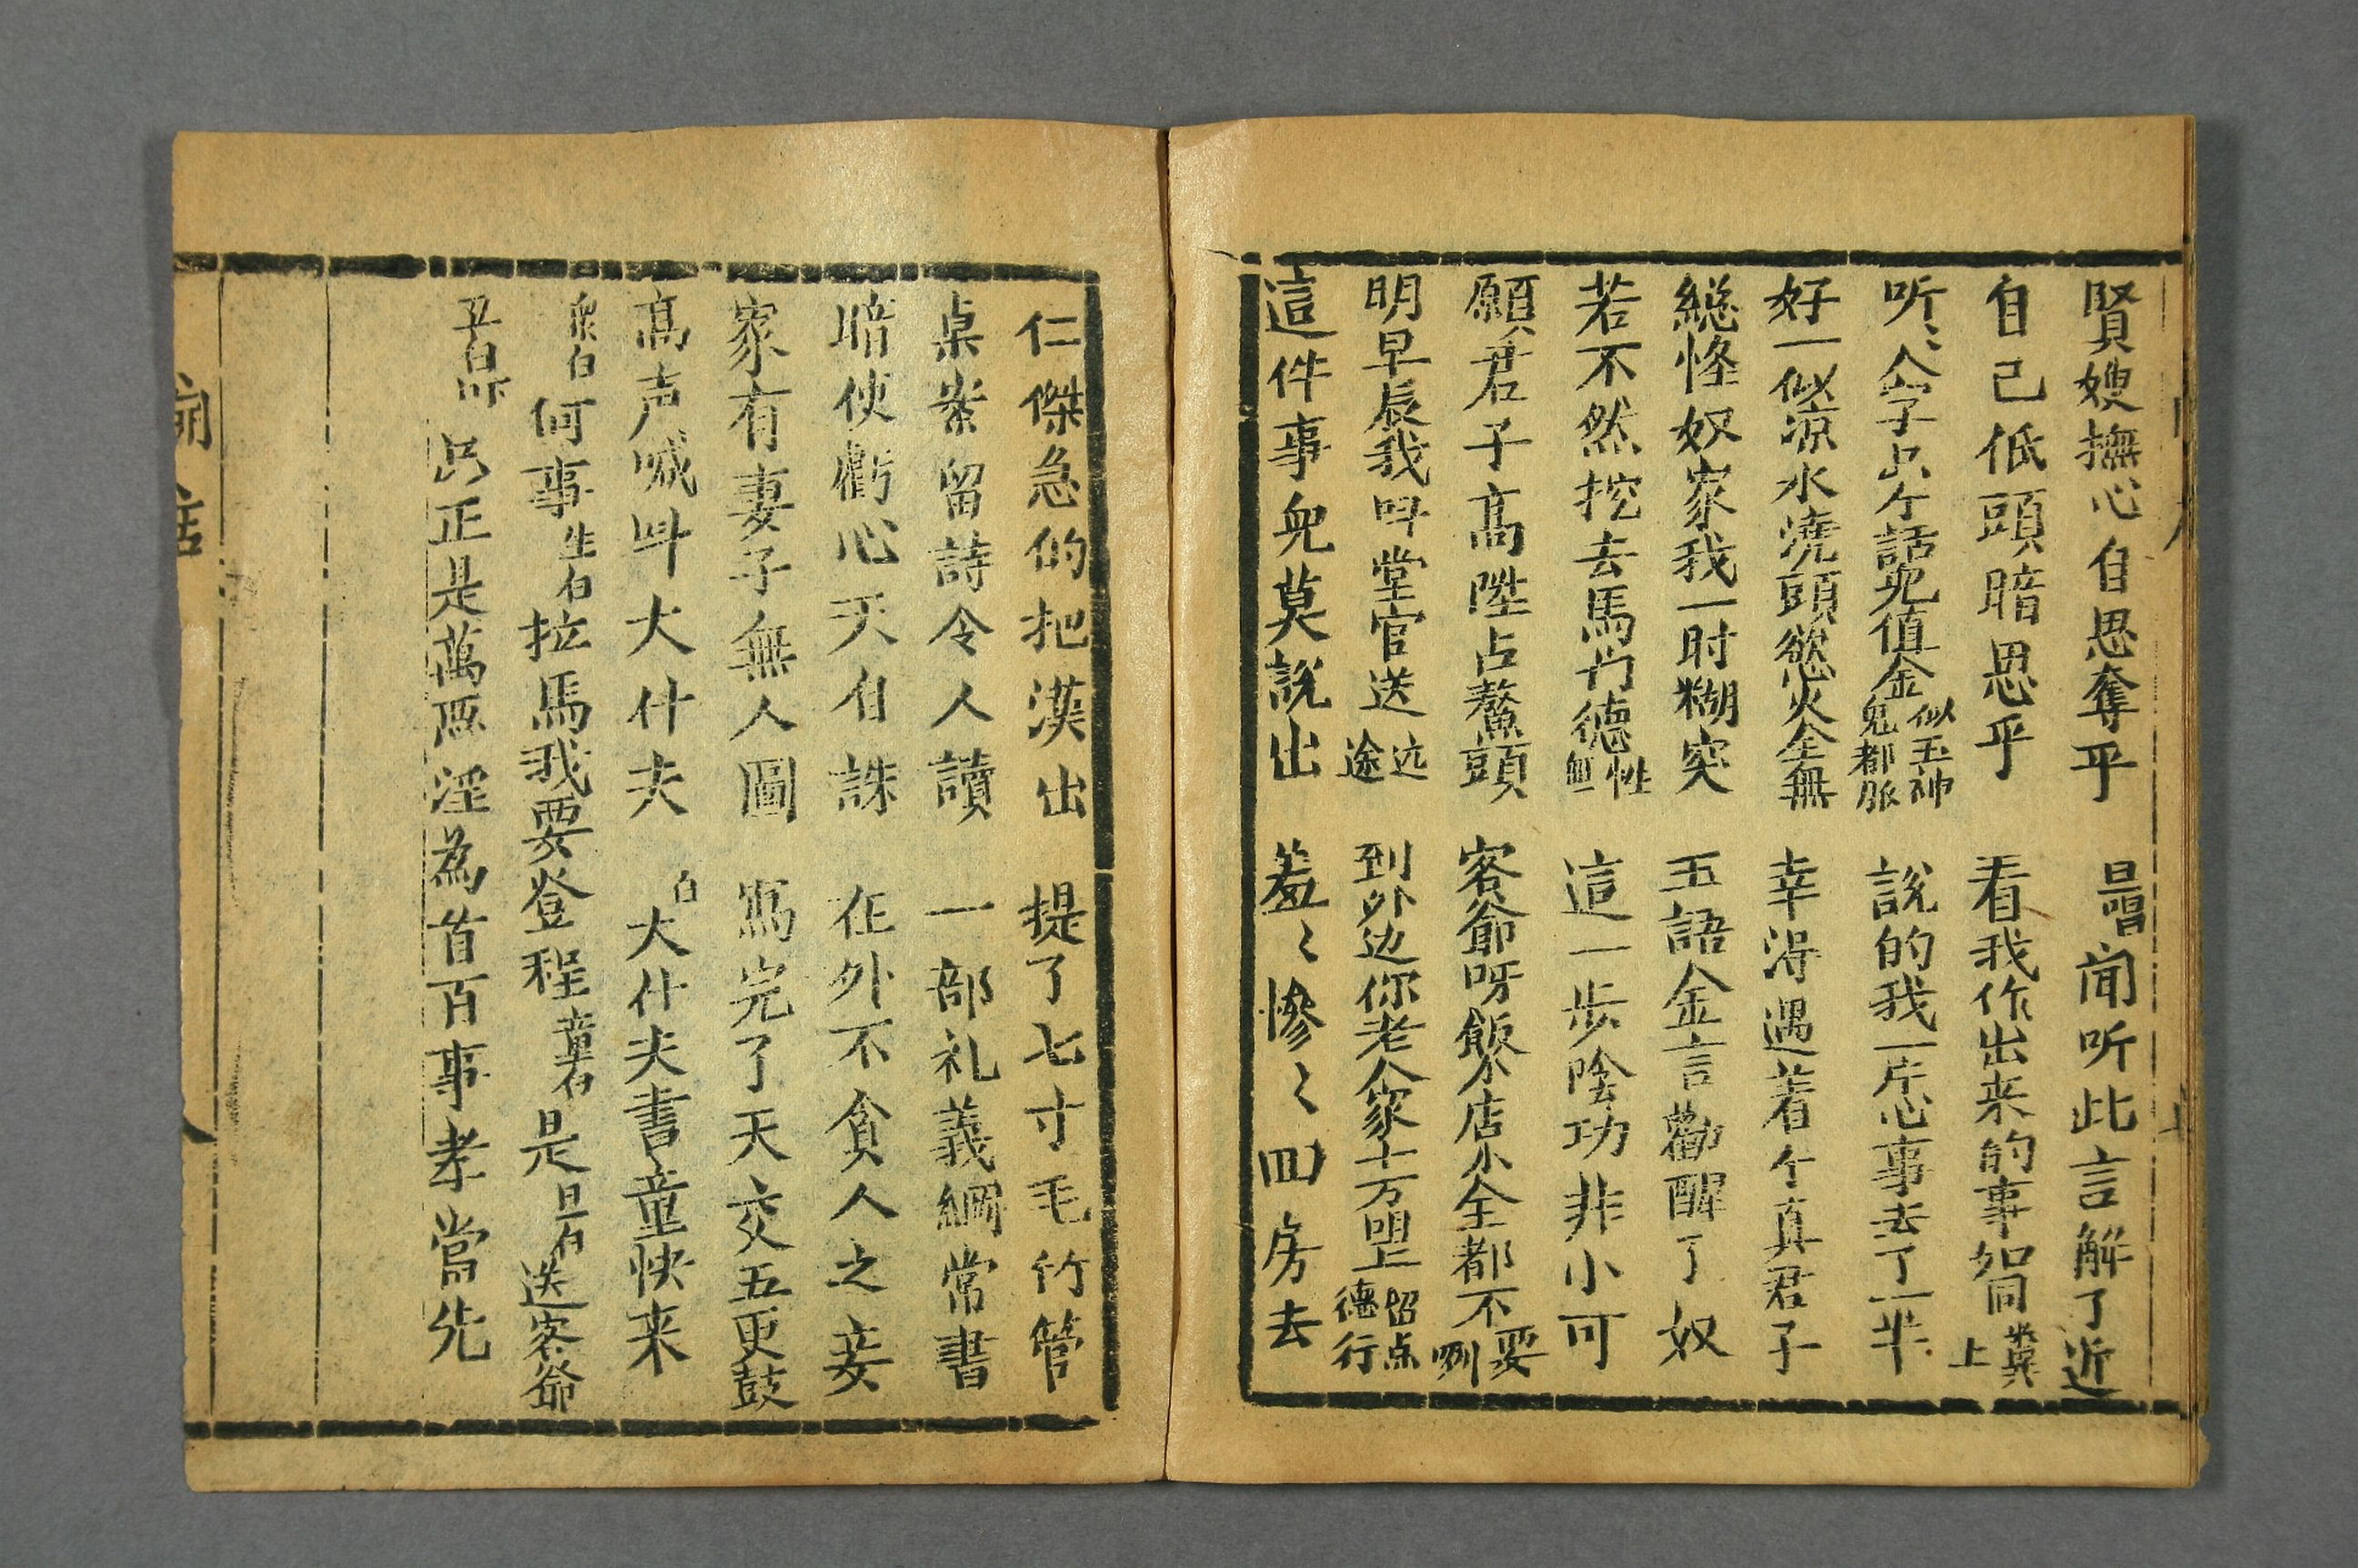 賢嫂撫心自思奪乎 旦唱闻听此言解了近
自己低頭暗思乎 看我作出来的事如同糞上
听听人字字个話児值金似玉神鬼都脈 說的我一片心事去了一半
好一似凉水澆頭慾火全無 幸淂遇着个真君子
總怪奴家我一时糊突 玉語金言勸醒了奴
若不然挖去馬門德性無 這一步陰功非小可
願君子高陞占鰲頭 客爺呀飯不店不全都不要咧
明早辰我呌堂官送远途 到外边你老人家十万留点德行
這件事兒莫說出 羞〻慘〻回房去
仁傑急的把漢出 提了七寸毛竹管
桌案留詩令人讀 一部礼義綱常書
暗使虧心天自誅 在外不貪人之妾
家有妻子無人圖 寫完了天交五更鼓
高声喊呌大什夫 白大什夫書童快来
衆白何事生白拉馬我要登程童白是旦白送客爺
丑白 正是萬惡淫為首百事孝當先